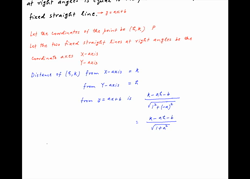 at right angles is equal to
fixed straight line. → y = ax + b
Let the coordinates of the point be (h, k) P
Let the two fixed straight lines at right angles be the
coordinate axes X-axis
Y-axis
Distance of (h, k) from X-axis = k
from Y-axis = h
from y = ax + b is k - ah - b / √(1² + (-a)²)
= k - ah - b / √(1 + a²)